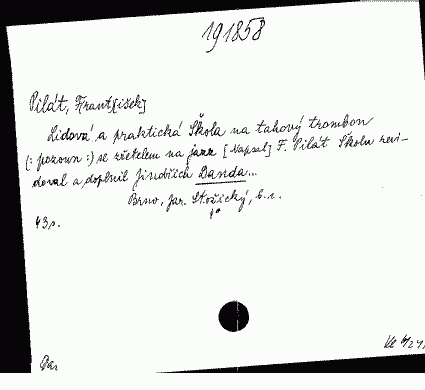 191858
Pilát, Frant[išek]
Lidová a praktická Škola na tahový trombon
(: pozoun :) se zřetelem na jazz [Napsal] F. Pilát Školu revi-
doval a doplnil Jindřich Banda...
Brno, Jar. Stožický, b. r.
4°
43 s.